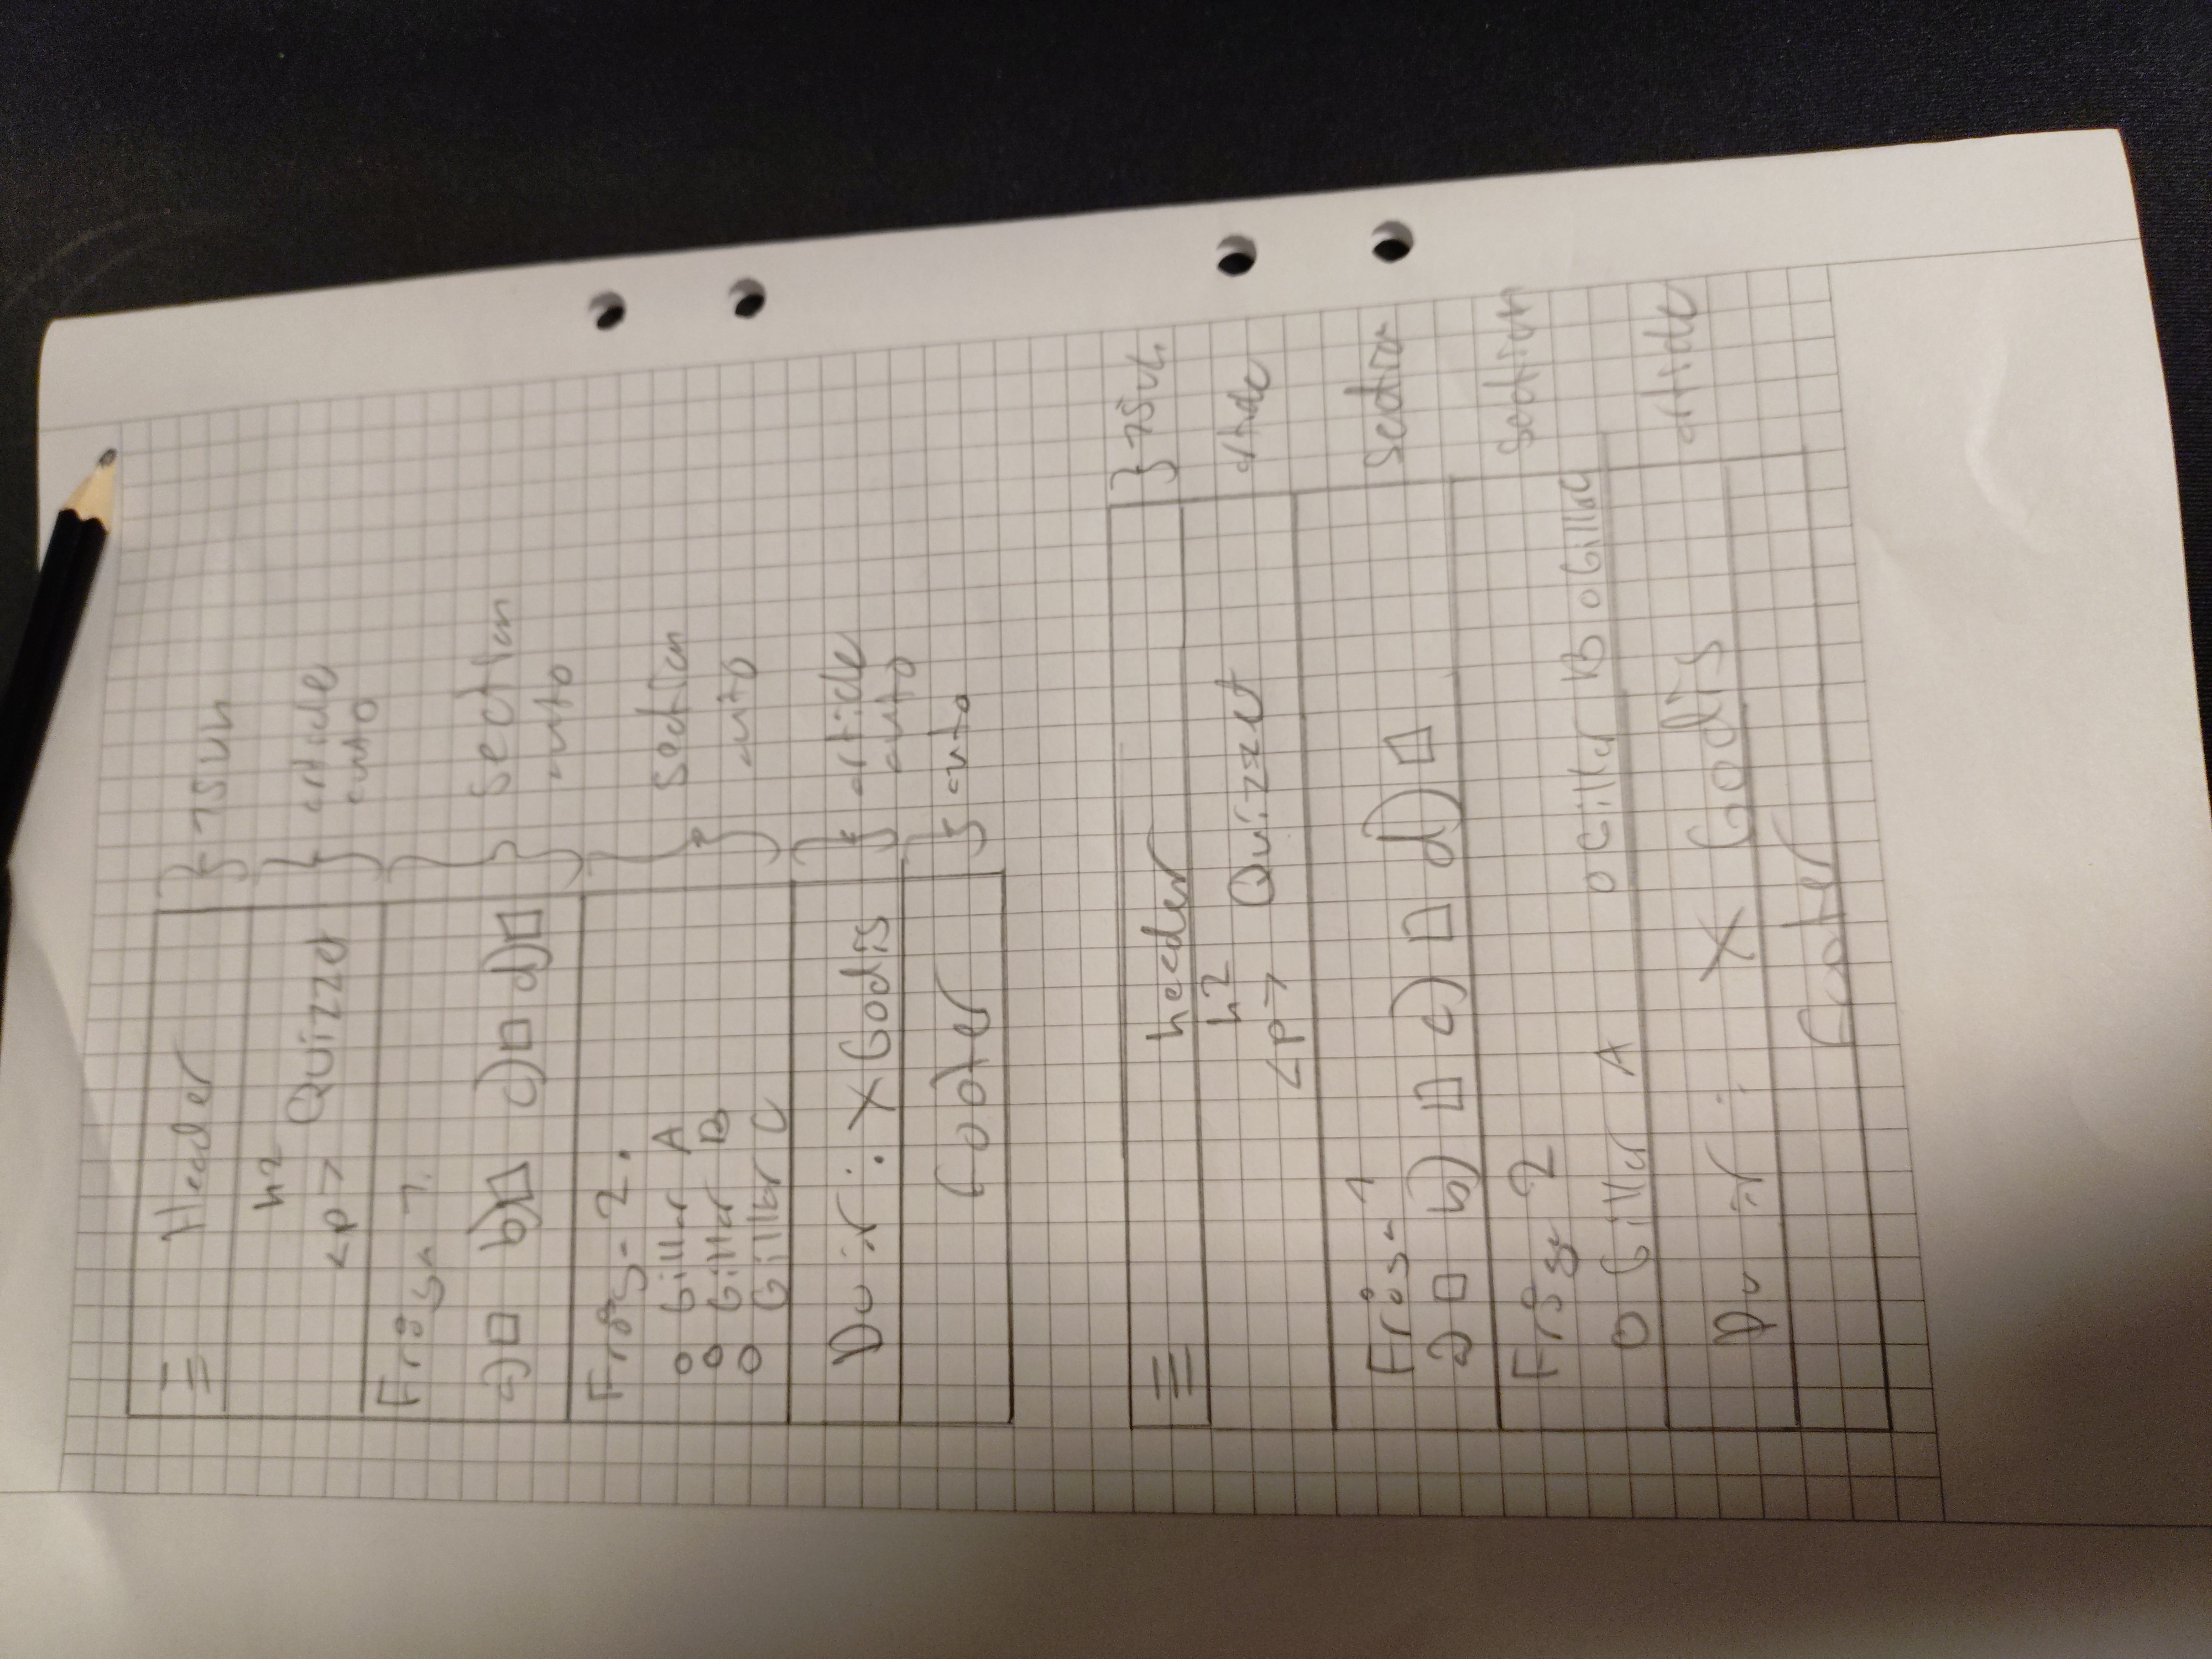 Header } 15vh
h2
<p> Quizzet } article
auto
Fråga 1.
a) □ b) □ c) □ d) □ } section
auto
Fråga 2.
o Gillar A
o Gillar B
o Gillar C
section
auto
Du är: X Godis } article
auto
footer } auto
header } 15vh
h2
<p> Quizzet article
Fråga 1
a) □ b) □ c) □ d) □ section
Fråga 2 section
o Gillar A o Gillar B o Gillar C
Du är: X Godis article
footer